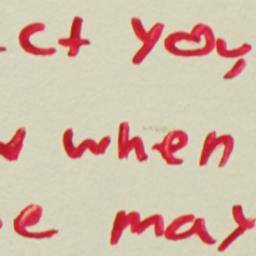 ct you,
w when
e may